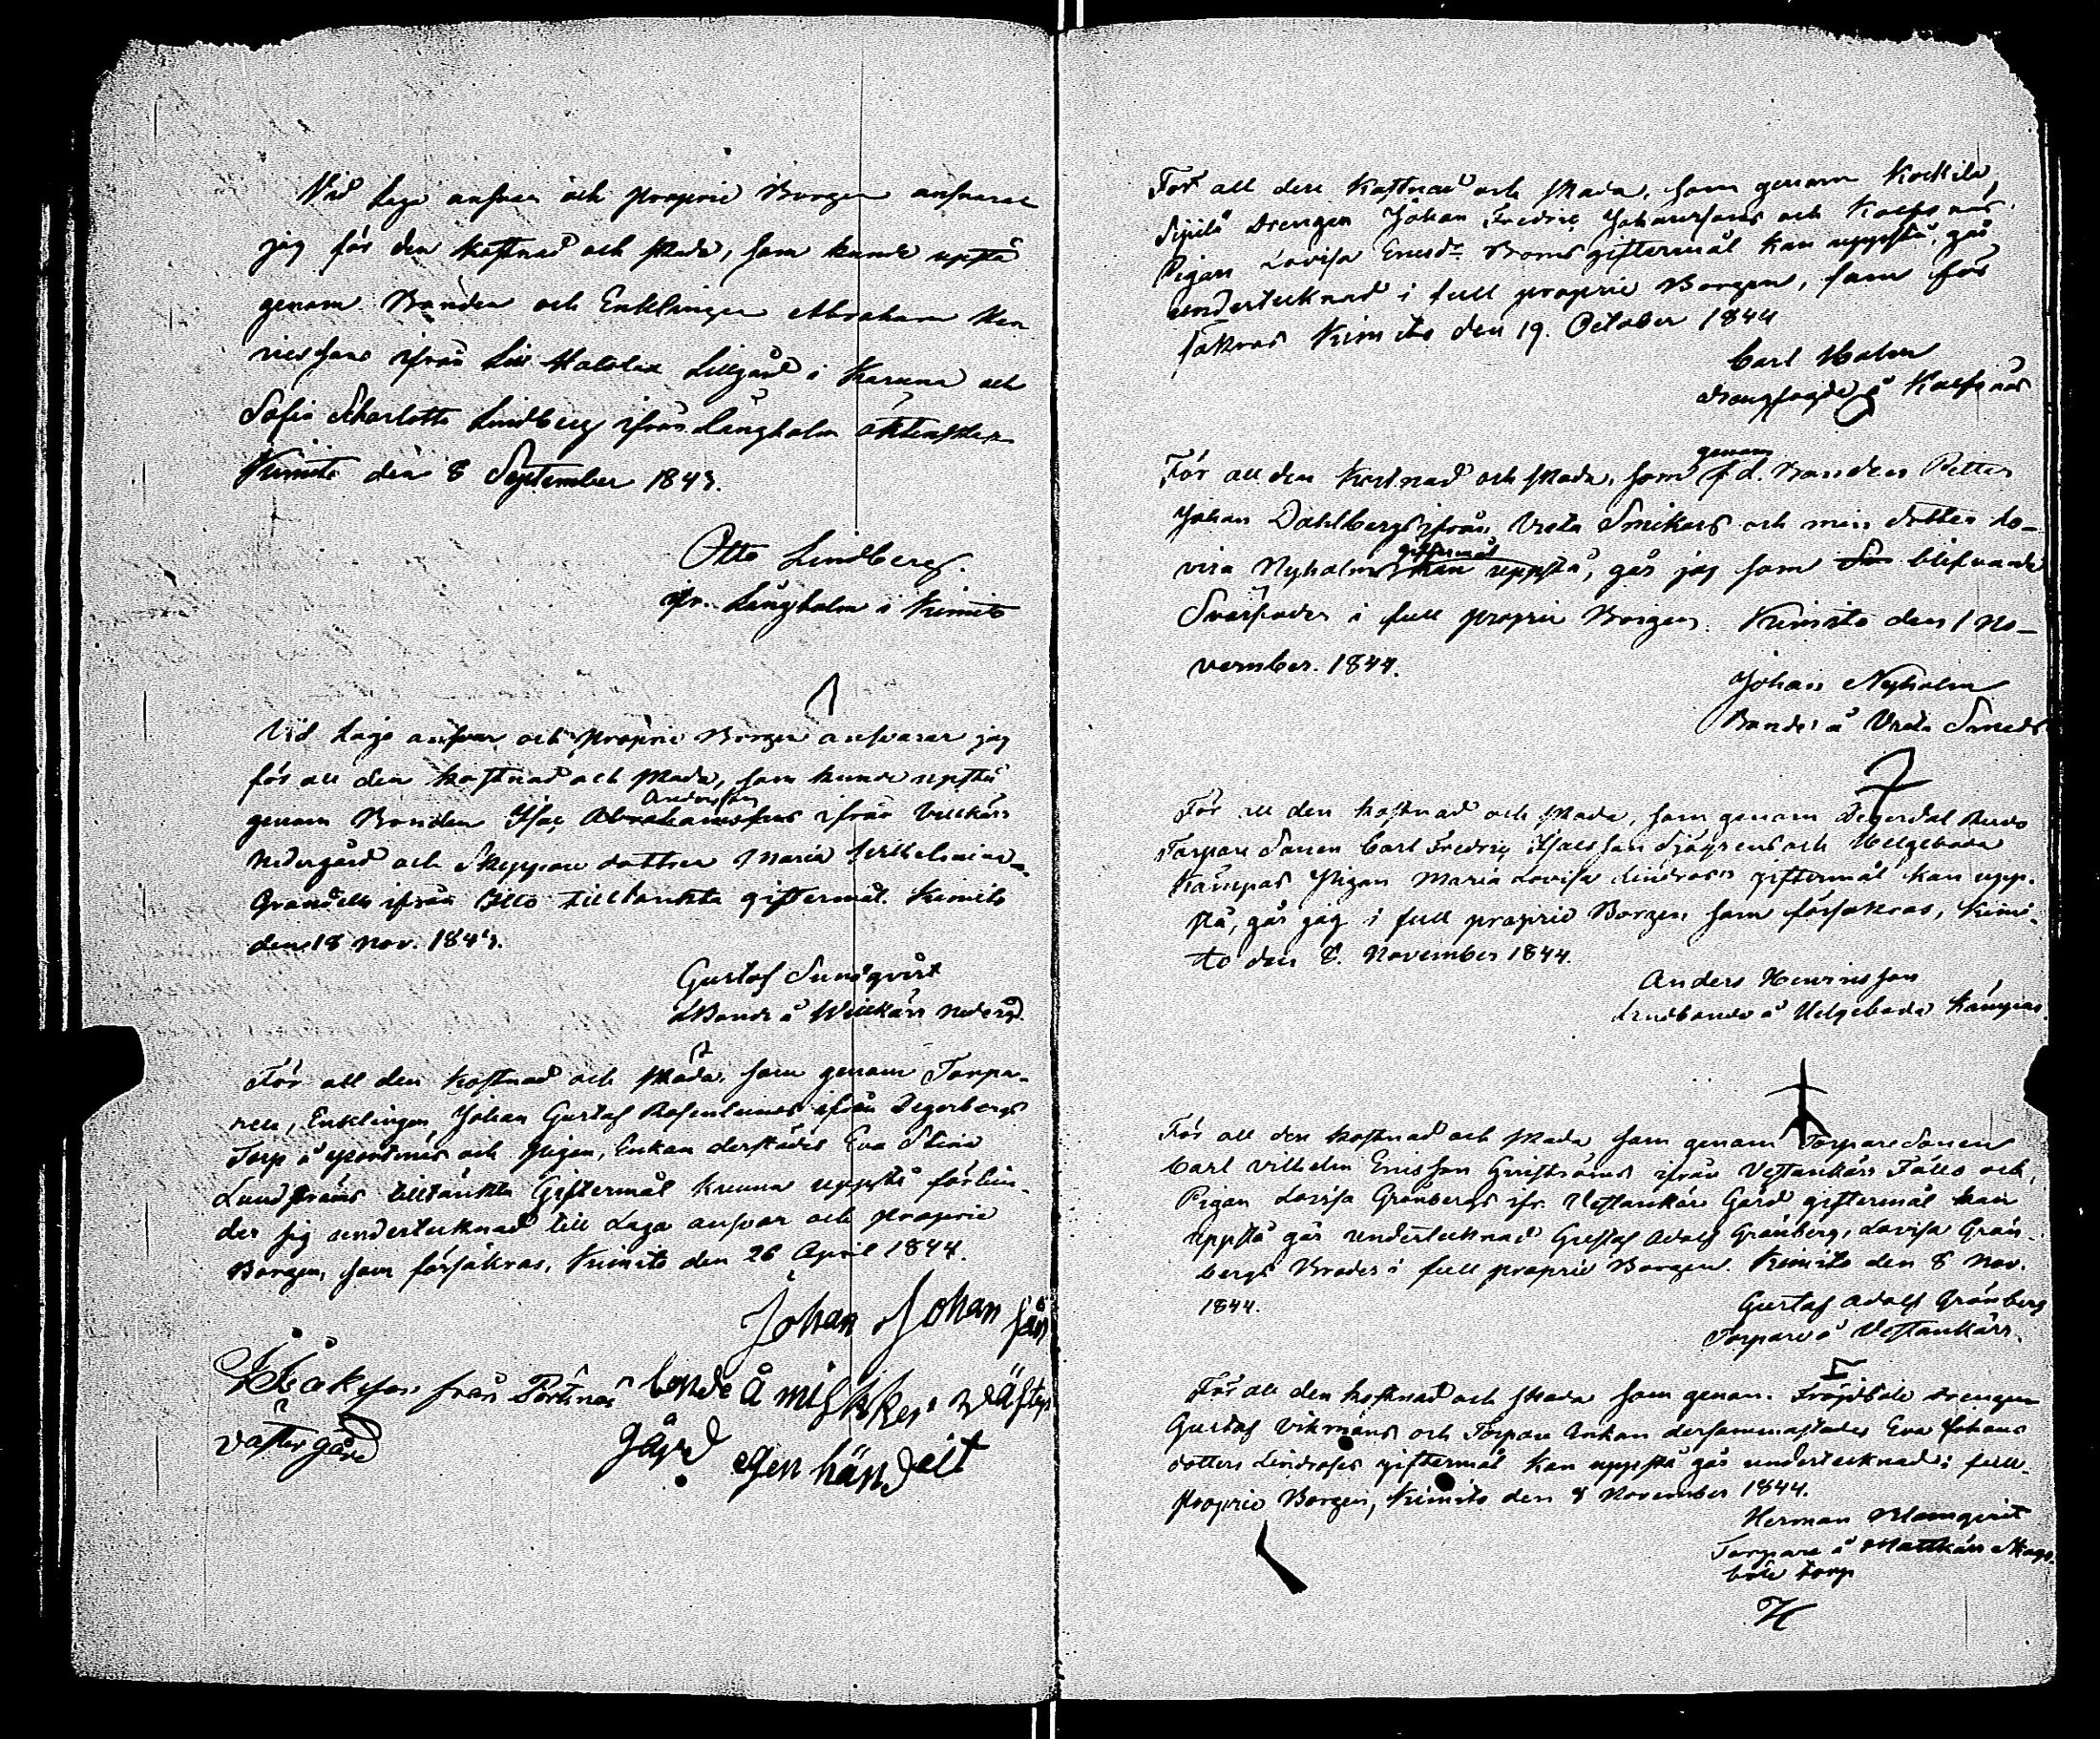 Vid Laga ansvar och proprie Borgen ansvarar
jag för den kostnad och skada, som kunde uppstå
genom Bonden och Enklingen Abraham Hen
ricssons ifrån Lill Lillgård i Karuna och
Sofia Scharlotta Lindberg ifrån Långholm äktenskap
Kimito den 8 September 1843.
Otto Lindberg.
ifr. Långholm i Kimito
Vid Laga ansvar och proprie Borgen ansvarar jag
för all den kostnad och skada, som kunde uppstå
Andersson
genom Bonden Isac Abrahamsons ifrån Villkärr
Nedergård och Skeppare dottren Maria Vilhelmina
Grandells ifrån Illo tilltänkta giftermål. Kimito
den 18 Nov. 1843.
Gustaf Sundqvist
LBonde å Willkärr Nedergd.
För all den kostnad och skada, som genom Torpa-
ren, Enklingen, Johan Gustaf ifrån Degerbergs
Torp å Pörtnäs och Pigan, Enkan derstädes Eva Stina
Lundströms tilltänkta Giftermål kunna uppstå förbin-
der sig undertecknad till Laga ansvar och proprie
Borgen, som försäkras, Kimito den 26 April 1844.
Johan Johansson
J Isaksson från Pörtnäs bonde å miskker Wäster
västergård gård egen händeit
För all den kostnad och skada, som genom Kockila
Sjpilå Drengen Johan Fredric Johanssons och Kalfsnäs
Pigan Lovisa Ericsdr Boms giftermål kan uppstå, går
undertecknad i full proprie Borgen, som för
säkras Kimito den 19. October 1844
Carl Malm
drängfogde å Kalfsnäs
genom
För all den kostnad och skada, som f.d. Bonden Petter
Johan Dahlbergs ifrån Vreta Smikars och min dotter Lo-
giftermål
visa Nyholms kan uppstå, går jag som blifvande
Svärfader i full proprie Borgen. Kimito den 1 No-
vember. 1844.
Johan Nyholm
Bonde å Vreta Smeds
För all den kostnad och skada, som genom Degerdal
Torpare Sonen Carl Fredric Isacsson Sjögrens och Helgeboda
Kämpas Pigan Maria Lovisa Lindroos giftermål kan upp-
stå, går jag i full proprie Borgen som försäkras, Kimi-
to den 8. November 1844.
Anders Henricsson
Landbonde å Helgeboda Kämpas.
För all den kostnad och skada som genom Torpare Sonen
Carl Vilhelm Ericsson ifrån Vestankärr Fällo och
Pigan Lovisa Grönbergs ifr. Vestankärr Gård giftermål kan
uppstå går undertecknad Gustaf Adolf Grönberg, Lovisa Grön
bergs Broder i full proprie Borgen. Kimito den 8 Nov.
1844.
Gustaf Adolf Grönberg
Torpare å Vestankärr.
För all den kostnad och skada som genom Fröjdböle drengen
Gustaf Vikmans och Torpare Enkan dersammastädes Eva Johans
dotters Lindroos giftermål kan uppstå går undertecknad i full
proprie Borgen, Kimito den 8 November 1844.
Herman Blomqvist
Torpare å Mattkärr Skogs
böle torp
H